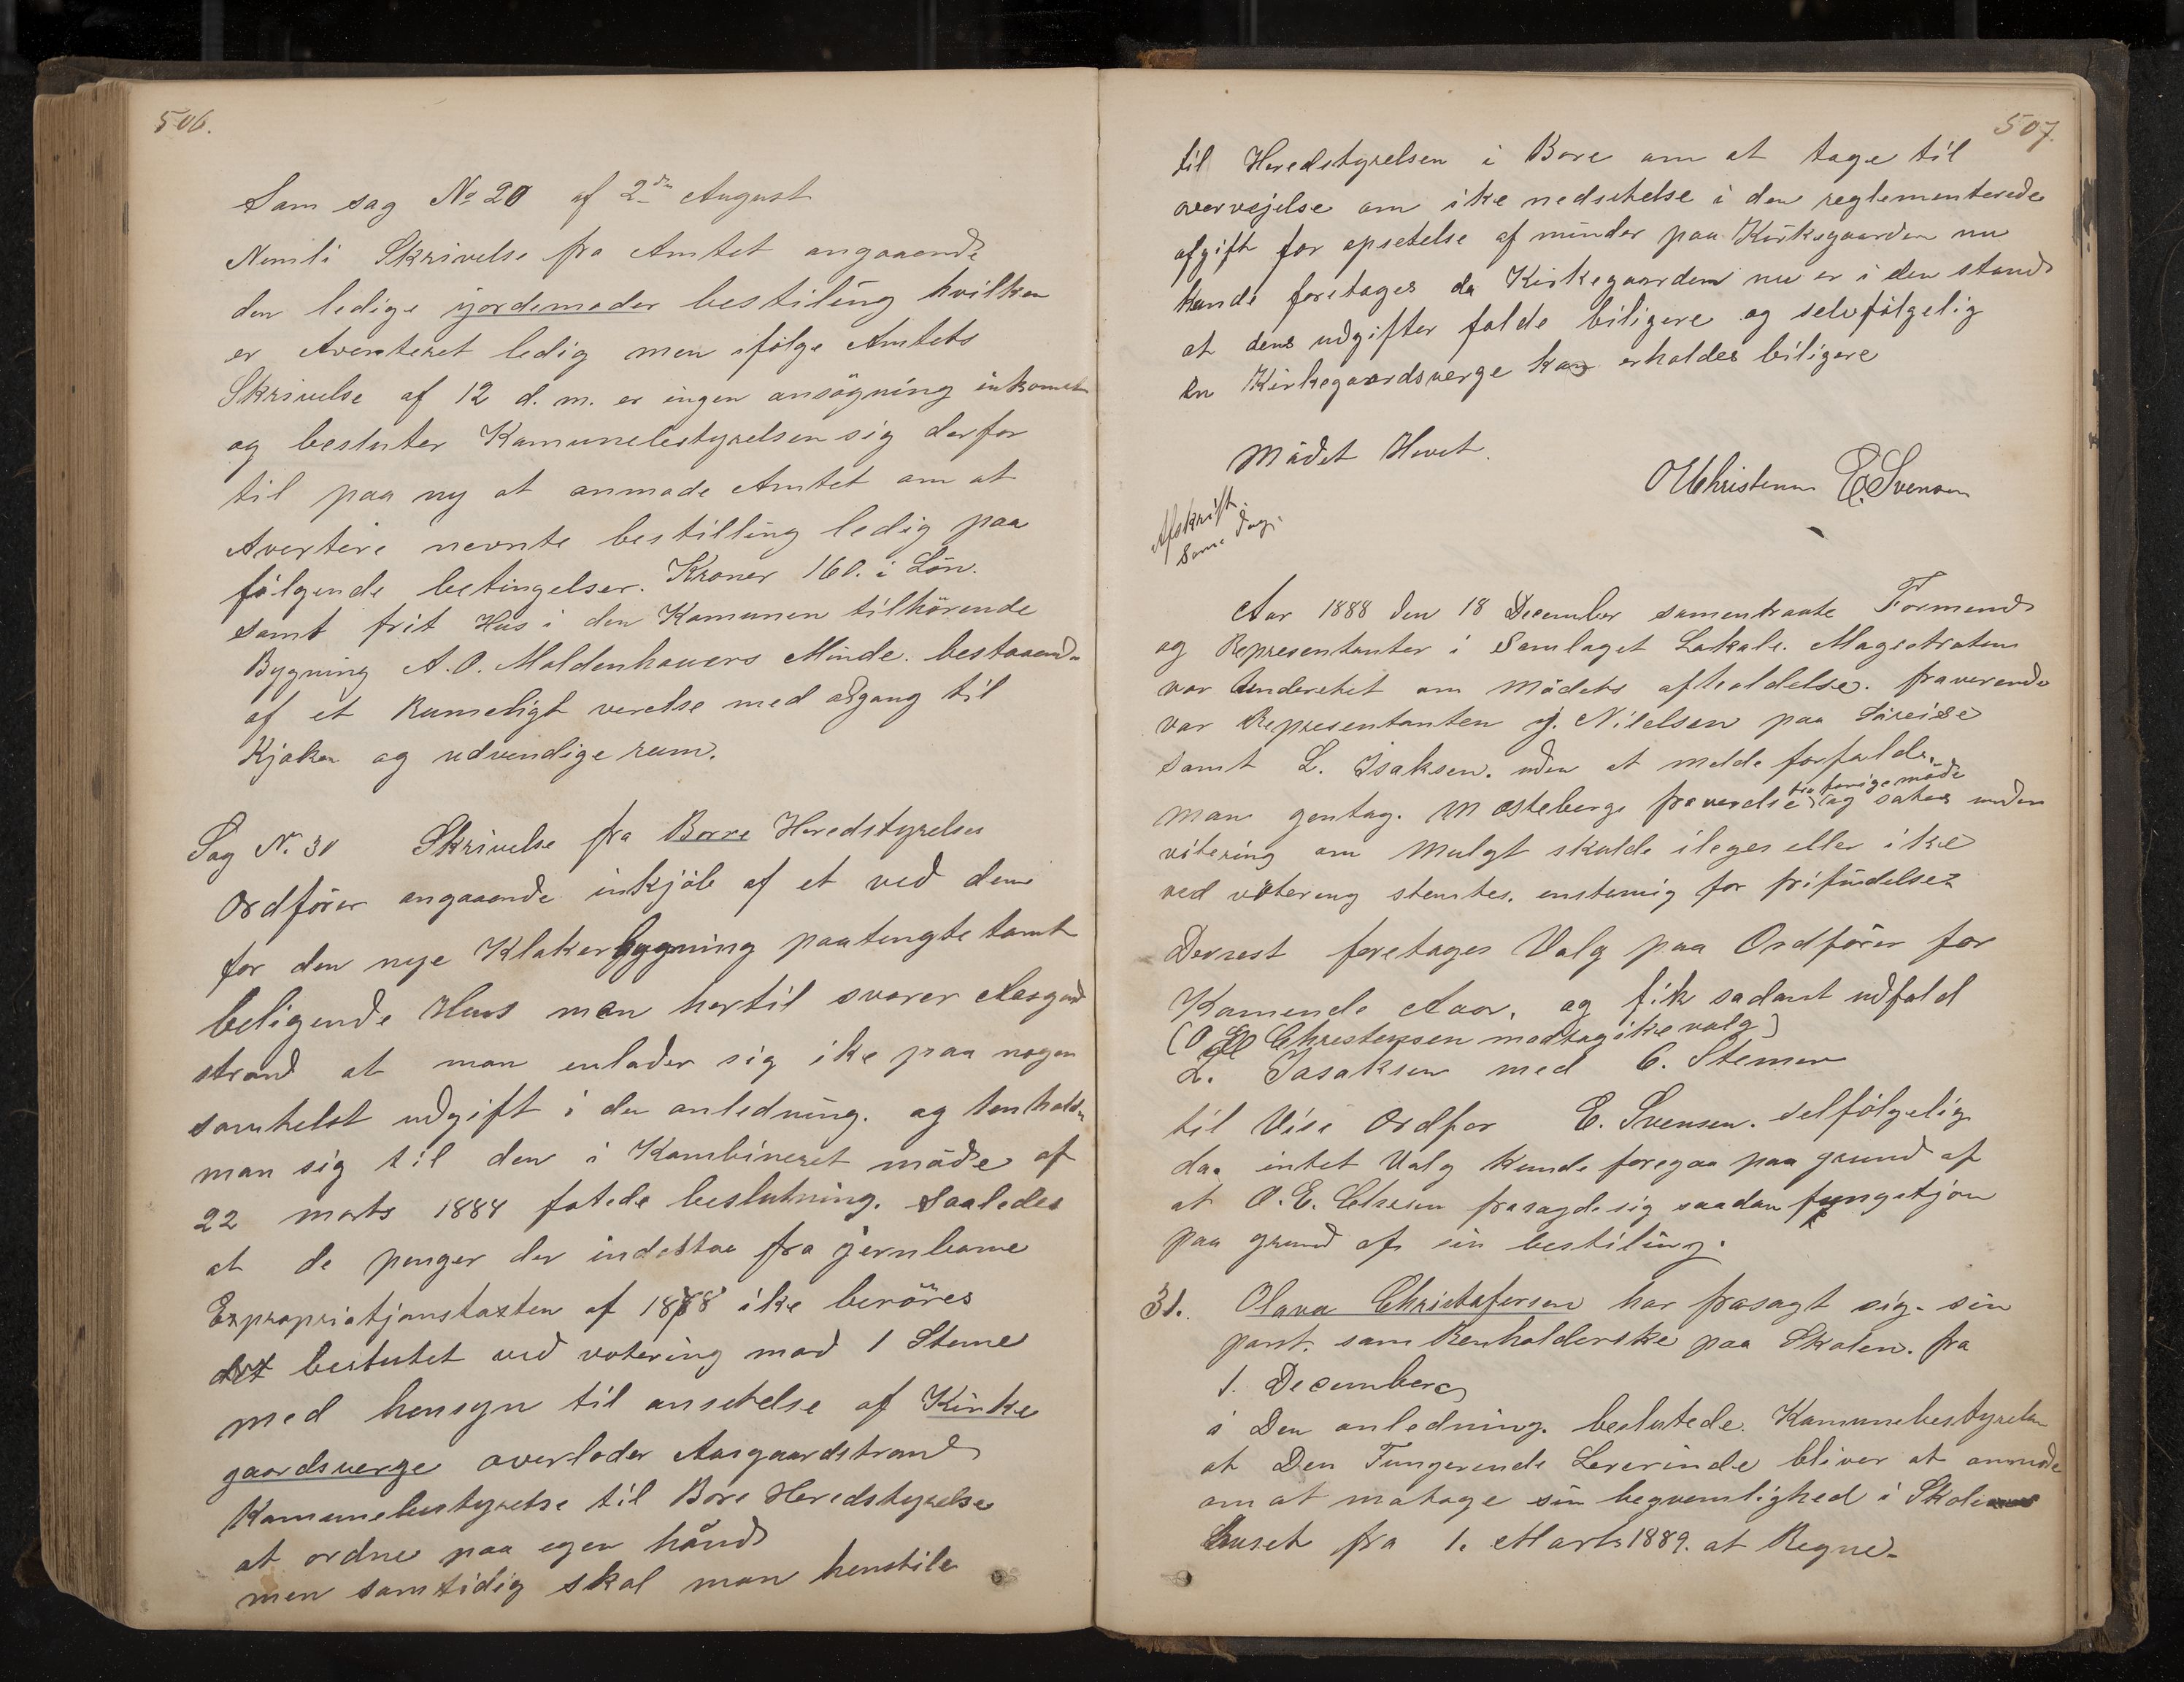 506.
Som sag No 20 af 2den August
Nemli Skrivelse fra Amtet angaaende
den ledige gjordemoder bestiling hvilken
er Averteret ledig men ifölge Amtets
Skrivelse af 12 d. m. er ingen ansögning inkomet
og besluter Kamunebestyrelsen sig derfor
til paa ny at anmode Amtet om at
Avertere nevnte bestilling ledig paa
fölgende betingelser. Kroner 160. i Lön.
samt frit Hus i den Kamunen tilhörende
Bygning A. O. Moldenhauers Minde. bestaaende
af et Rumeligt verelse med adgang til
Kjöken og udvendige rum.
Sag N. 30 Skrivelse fra Borre Heredstyrelses
Ordförer angaaende inkjöb af et ved den
for den nye Klokerbygning paatengte tomt
beligende Hus man hertil svarer Aasgaard
strand at man inlader sig ike paa nogen
somhelst udgift i den anledning. og henholder
man sig til den i Kombineret möde af
22 marts 1884 fatede beslutning. Saaledes
at de penger der indestaa fra jernbane
Expropriatjonstaxten af 1888 ike beröres
det beslutet ved votering mod 1 Steme
med hensyn til ansetelse af Kirke
gaardsverge overlader Aasgaardstrand
Kamunebestyrelse til Bore Heredstyrelse
at ordne paa egen hånd
men samtidig skal man henstile
507.
til Heredstyrelsen i Bore om at tage til
overvejelse om ike nedsetelse i den reglementerede
afgift for opsetelse af minder paa Kirkegaarden nu
kunde foretages da Kirkegaarden nu er i den stand
at dens udgifter falde biligere og selvfölgelig
en Kirkegaardsverge kan erholdes biligere
Mödet Hevet.
O E Christensen E. Svensen
Afskrift
Same Dag.
Aar 1888 den 18 December samentraate Formend
og Representanter i Samlaget Lokale. Magistraten
var Underetet om Mödets afholdelse. fraverende
var Representanten J. Nilelsen paa Söreise
samt L. Isaksen. uden at melde forfald.
fra forige möde
man gentog. M Østebergs fraverelse og sates under
vótering om Mulgt skulde ileges eller ike
ved vótering stemtes. enstemig for frifindelse
Dernest foretages Valg paa Ordförer for
Komende Aar. og fik sadant udfald
(O E Christensen modtog ike valg)
L. Isaksen med 6. Stemer
til Vise Ordför E. Svensen. selfölgelig
da intet Valg kunde foregaa paa grund af
at O. E. Chrsen frasagde sig saadan fungstjon
paa grund af sin bestiling.
31. Olava Christofersen har frasagt sig. sin
post. som Renholderske paa Skolen. fra
1. December
i Den anledning. beslutede Kamunebestyrelsen
at Den Fungerende Lererinde bliver at anmode
om at motage sin beqvemlighed i Skole
huset fra 1. Marts 1889. at Regne